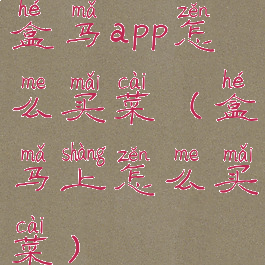 hé mǎ zěn
盒马app怎
me mǎi cài hé
么买菜（盒
mǎ shàng zěn me mǎi
马上怎么买
cài
菜）